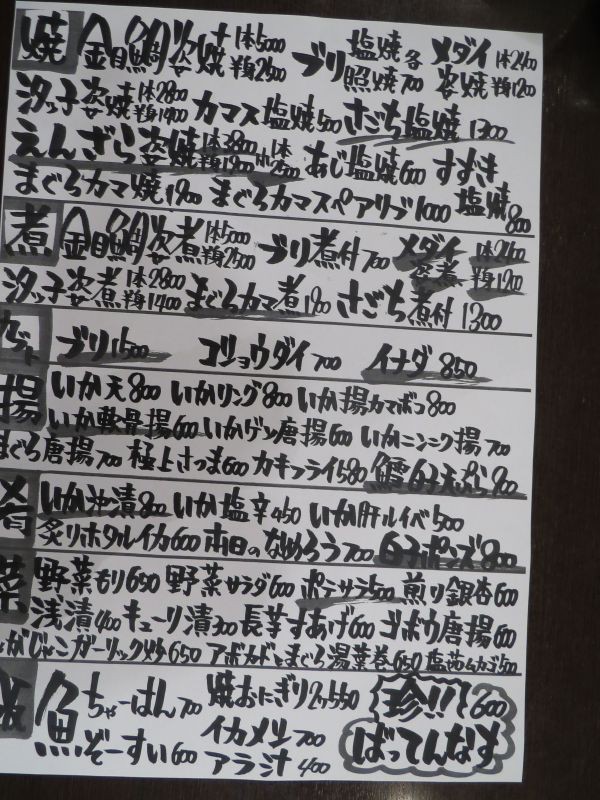 焼 金目鯛姿焼 1体5000 半身2500 ブリ 塩焼 照焼 各700 メダイ姿焼 1体2400 半身1200
汐っ子姿焼 1体2800 半身1400 カマス塩焼500 さごち塩焼1300
えんざら姿焼 1体3800 半身1900 小1体2500 あじ塩焼600 すずき塩焼800
まぐろカマ焼1900 まぐろカマスペアリブ1000
煮 金目鯛姿煮 1体5000 半身2500 ブリ煮付700 メダイ姿煮 1体2400 半身1200
汐っ子姿煮 1体2800 半身1400 まぐろカマ煮1900 さごち煮付1300
ブリ1500 コショウダイ700 イナダ850
揚 いか天800 いかリング800 いか揚カマボコ800
いか軟骨揚600 いかゲソ唐揚600 いかニンニク揚700
まぐろ唐揚700 極上さつま600 カキフライ580 鱈白子天ぷら900
肴 いか沖漬800 いか塩辛450 いか肝ルイベ500
炙りホタルイカ600 本日のなめろう700 白子ポンズ800
菜 野菜もり650 野菜サラダ600 ポテサラ500 煎り銀杏600
浅漬400 キューリ漬300 長芋すあげ600 ゴボウ唐揚600
じゃこガーリック炒め650 アボカドとまぐろ湯葉巻650 塩茹ムカゴ500
飯 魚ちゃーはん700 焼おにぎり2ヶ550 珍!! 600
魚ぞーすい600 イカメシ700 ばってんなす
アラ汁400